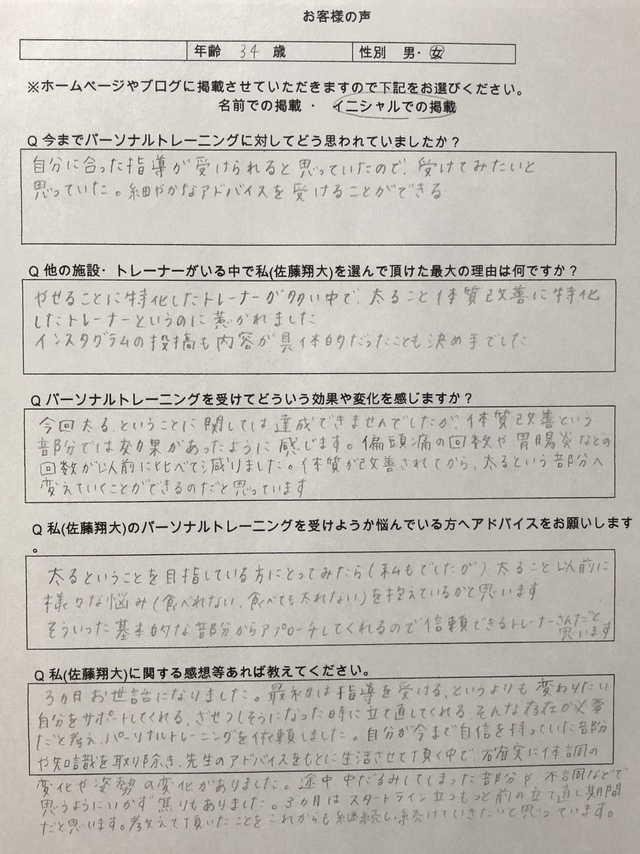 お客様の声
年齢 34 歳 性別 男・女
※ホームページやブログに掲載させていただきますので下記をお選びください。
名前での掲載 ・ イニシャルでの掲載
Q 今までパーソナルトレーニングに対してどう思われていましたか？
自分に合った指導が受けられると思っていたので、受けてみたいと
思っていた。細やかなアドバイスを受けることができる
Q 他の施設・トレーナーがいる中で私(佐藤翔大)を選んで頂けた最大の理由は何ですか？
やせることに特化したトレーナーが多い中で、太ること体質改善に特化
したトレーナーというのに惹かれました
インスタグラムの投稿も内容が具体的だったことも決め手でした
Q パーソナルトレーニングを受けてどういう効果や変化を感じますか？
今回太る、ということに関しては達成できませんでしたが、体質改善という
部分では効果があったように感じます。偏頭痛の回数や胃腸炎などの
回数が以前にくらべて減りました。体質が改善されてから、太るという部分へ
変えていくことができるのだと思っています
Q 私(佐藤翔大)のパーソナルトレーニングを受けようか悩んでいる方へアドバイスをお願いします
。
太るということを目指している方にとってみたら(私もでしたが)太ること以前に
様々な悩み(食べれない、食べても太れない)を抱えているかと思います
そういった基本的な部分からアプローチしてくれるので信頼できるトレーナーさんだと
思います
Q 私(佐藤翔大)に関する感想等あれば教えてください。
3ヵ月お世話になりました。最初は指導を受ける、というよりも変わりたい
自分をサポートしてくれる、ざせつしそうになった時に立て直してくれる そんな存在が必要
だと考え、パーソナルトレーニングを依頼しました。自分が今まで自信を持っていた部分
や知識を取り除き、先生のアドバイスをもとに生活させて頂く中で、確実に体調の
変化や姿勢の変化がありました。途中中だるみしてしまった部分や、不調などで
思うようにいかず焦りもありました。3ヵ月はスタートライン立つもっと前の立て直し期間
だと思います。教えて頂いたことをこれからも継続し続けていきたいと思っています。